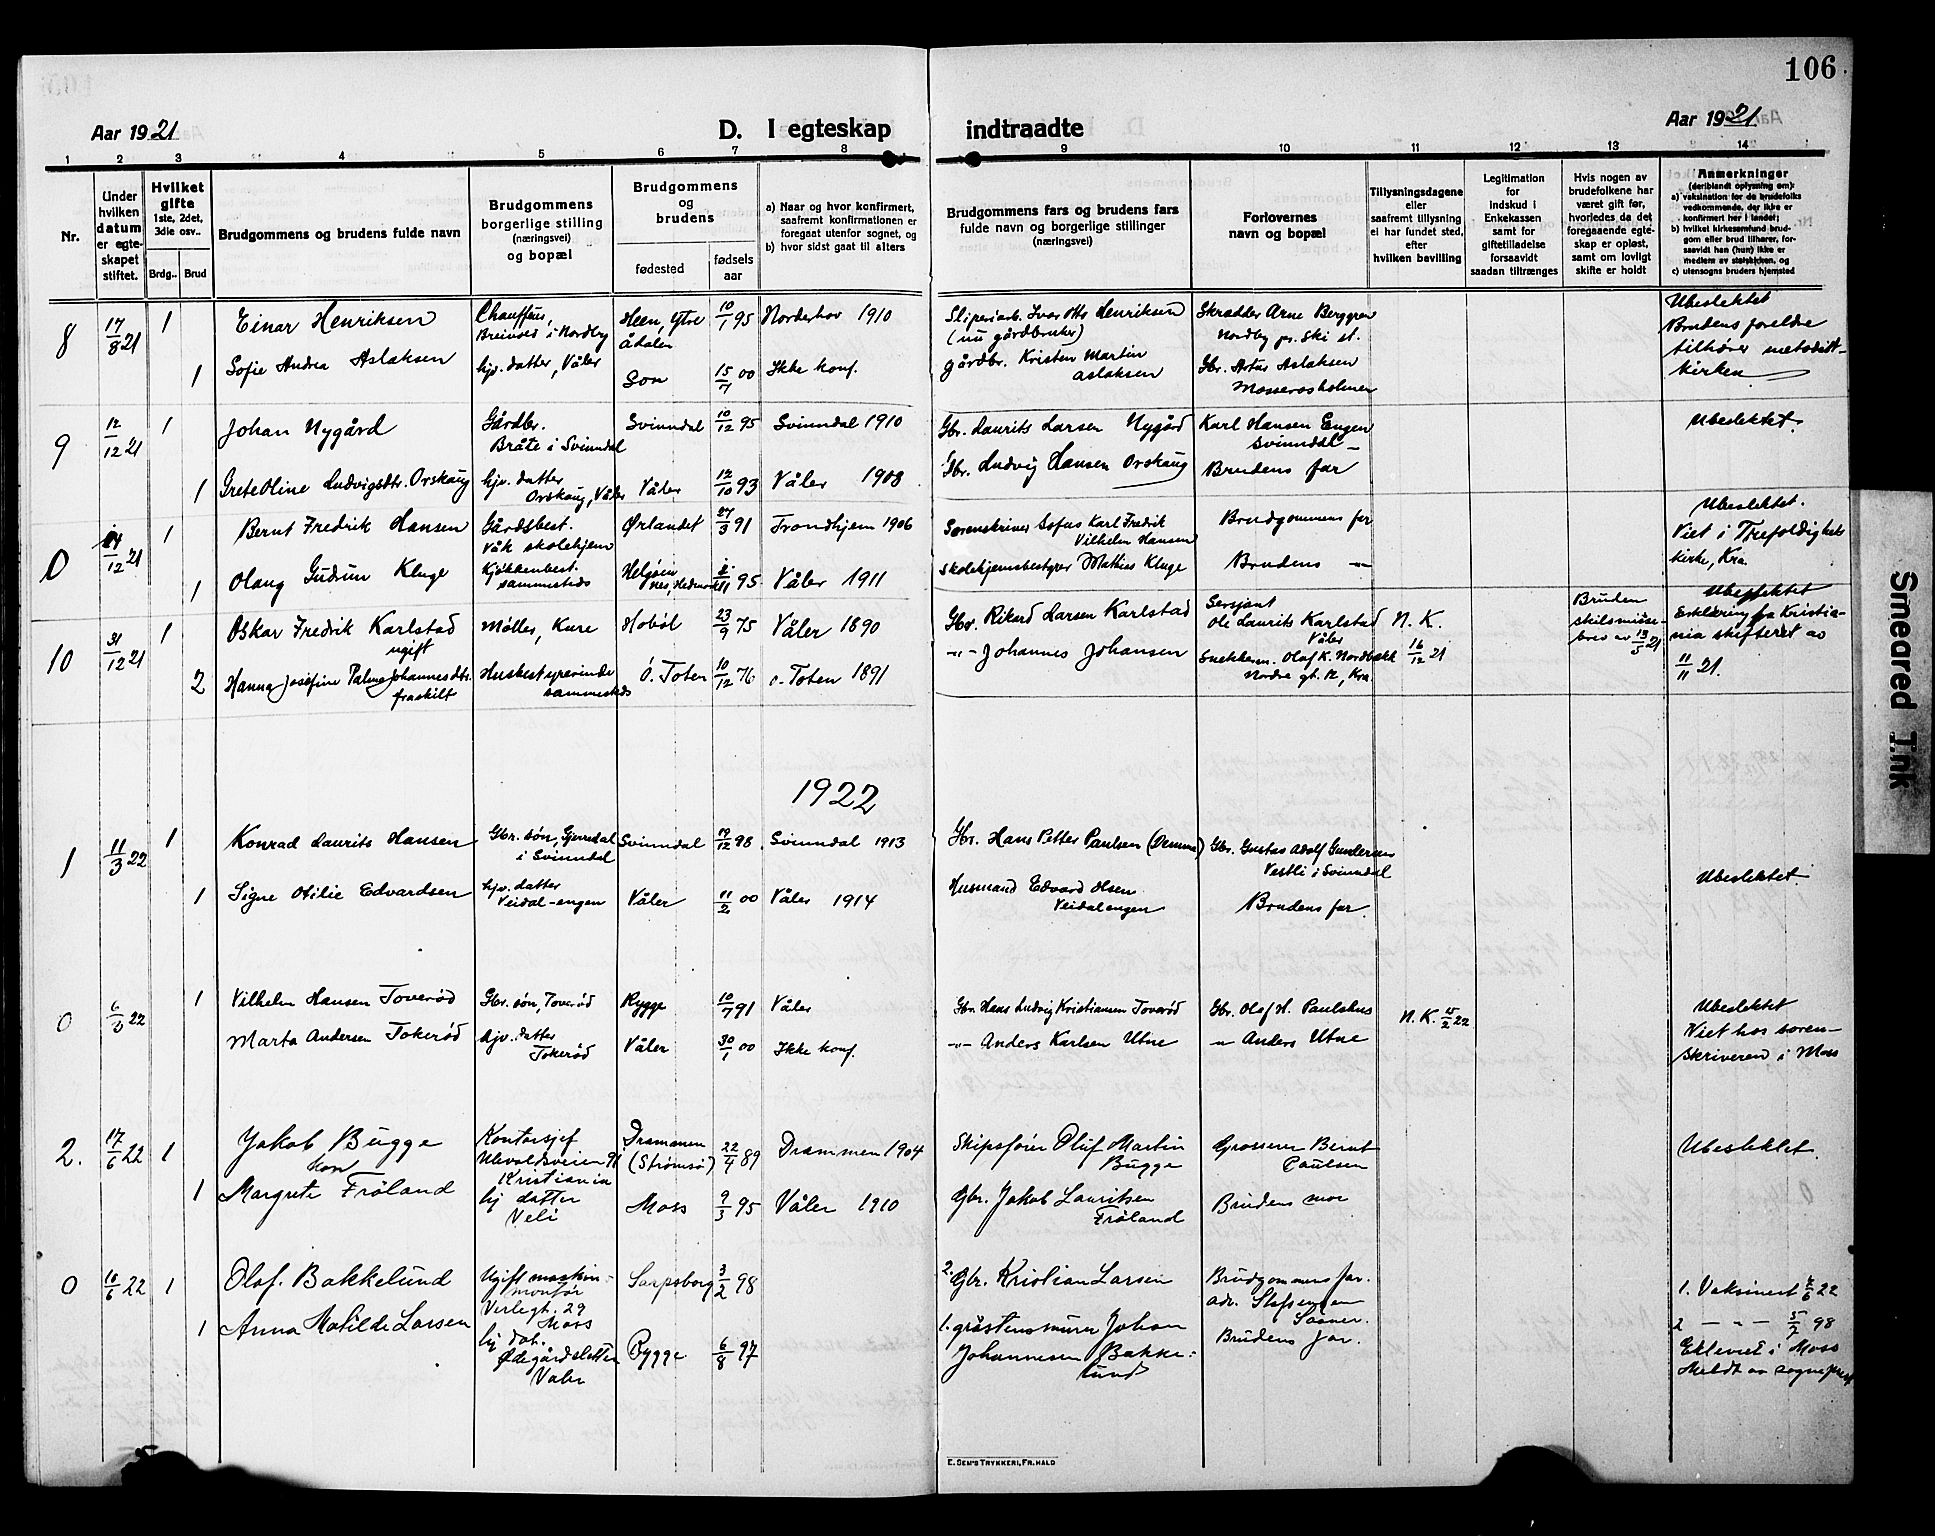 106
Aar 1921
D. I egteskap
indtraadte
Aar 1921
1 2 3 4 5 6 7 8 9 10 11 12 13 14
Nr.
Under hvilken datum er egteskapet stiftet.
Hvilket gifte 1ste, 2det, 3die osv..
Brdg.. Brud
Brudgommens og brudens fulde navn
Brudgommens borgerlige stilling (næringsvei) og bopæl
Brudgommens og brudens
fødested
fødsels aar
a) Naar og hvor konfirmert, saafremt konfirmationen er foregaat utenfor sognet, og
b) hvor sidst gaat til alters
Brudgommens fars og brudens fars fulde navn og borgerlige stillinger (næringsvei)
Forlovernes navn og bopæl
Tillysningsdagene eller saafremt tillysning ei har fundet sted, efter hvilken bevilling
Legitimation for indskud i Enkekassen samt for giftetilladelse forsaavidt saadan tiltrænges
Hvis nogen av brudefolkene har været gift før, hvorledes da det foregaaende egteskap er opløst, samt om lovligt skifte er holdt
Anmerkninger
(deriblandt oplysning om):
a) vaksination for de brudefolks vedkommende, der ikke er konfirmert her i landet;
b) hvilket kirkesamfund brudgom eller brud tilhører, forsaavidt han (hun) ikke er medlem av statskirken, og
c) utensogns bruders hjemsted
8 17/8 21 1 Einar Henriksen Chauffeur, Breivold i Nordby Heen, Ytre Ådalen 10/1 95 Norderhov 1910 Sliperiarb. Ivar Otto Henriksen (nu gårdbruker) Skrædder Arne Berggren Nordby pr. Ski st. Ubeslektet
Brudens foreldre tilhører metodistkirken
1 Sofie Andrea Aslaksen hjv. datter, Våler Son 15/7 00 Ikke konf. gårdbr. Kristen Martin Aslaksen Gbr. Artur Aslaksen Mosserosholmen
9 12/12 21 1 Johan Nygård Gårdbr. Bråte i Svinndal Svinndal 10/12 95 Svinndal 1910 Gbr. Laurits Larsen Nygård Karl Hansen Engen Svinndal Ubeslektet.
1 Grete Oline Ludvigsdtr. Orskaug hjv. datter Orskaug, Våler Våler 12/10 93 Våler 1908 Gbr. Ludvig Hansen Orskaug Brudens far
0 /12 21 1 Bernt Fredrik Hansen Gårdsbest. Våk skolehjem Ørlandet 27/3 91 Trondhjem 1906 Sorenskriver Sofus Karl Fredrik Vilhelm Hansen Brudgommens far Ubeslektet.
Viet i Trefoldighets kirke, Kra.
1 Olaug Gudrun Kluge Kjøkkenbest. sammesteds Helgøen, Nes, Hedmark /11 95 Våler 1911 Skolehjemsbestyrer Mathias Kluge Brudens —"—
10 31/12 21 1 Oskar Fredrik Karlstad ugift Møller, Kure Hobøl 23/9 75 Våler 1890 Gbr. Rikard Larsen Karlstad Sersjant Ole Laurits Karlstad Våler N. K. 16/12 21 Bruden skilsmisse-brev av 13/5 21 Ubeslektet
Erklæring fra Kristiania skifteret av 11/11 21.
2 Hanna Josefine Palma Johannesdtr. fraskilt Husbestyrerinde sammesteds Ö. Toten 10/12 76 Ö. Toten 1891 —"— Johannes Johansen Snekkerm. Olaf K. Nordbakk Nordre gt. 12, Kra
1922
1 11/3 22 1 Konrad Laurits Hansen Gbr. søn, Gjerredal i Svinndal Svinndal 19/12 98 Svinndal 1913 Gbr. Hans Petter Paulsen Gbr. Gustav Adolf Gundersen Vestli i Svinndal Ubeslektet.
1 Signe Otilie Edvardsen hjv. datter Veidal-engen Våler 11/2 00 Våler 1914 Husmand Edvard Olsen Veidalengen Brudens far
0 6/3 22 1 Vilhelm Hansen Toverød Gbr. søn, Toverød Rygge 10/7 91 Våler Gbr. Hans Ludvig Kristiansen Toverød Gbr. Olaf H. Paulshus N. K. 15/2 22 Ubeslektet
Viet hos sorenskriveren i Moss
Marta Andersen Tokerød hjv. datter Tokerød Våler 30/1 00 Ikke konf. —"— Anders Karlsen Utne —"— Anders Utne
2. 17/6 22 1 Jakob Bugge Kontorsjef Ullevoldsveien 91 Kristiania Drammen (Strømsø) 22/4 89 Drammen 1904 Skipsfører Oluf Martin Bugge Grosserer Bernt Paulsen Ubeslektet.
1 Margrete Frøland hj datter Veli Moss 9/3 95 Våler 1910 Gbr. Jakob Lauritsen Frøland Brudens mor
0 10/6 22 1 Olaf. Bakkelund Ugift maskinmontør Verlegt. 29 Moss Sarpsborg 3/2 98 2. Gbr. Kristian Larsen Brudgommens far. adr. Saaner. 1. Vaksinert /6 22
1 Anna Matilde Larsen hj dat. Ødegårdsletten Våler Rygge 6/8 97 1. gråstensmurer Johan Johannesen Bakkelund Brudens far. 2 — " — 5/7 98
Ekteviet i Moss
Meldt av sogneprest
E. Sem's Trykkeri, Fr.hald
Smeared Ink